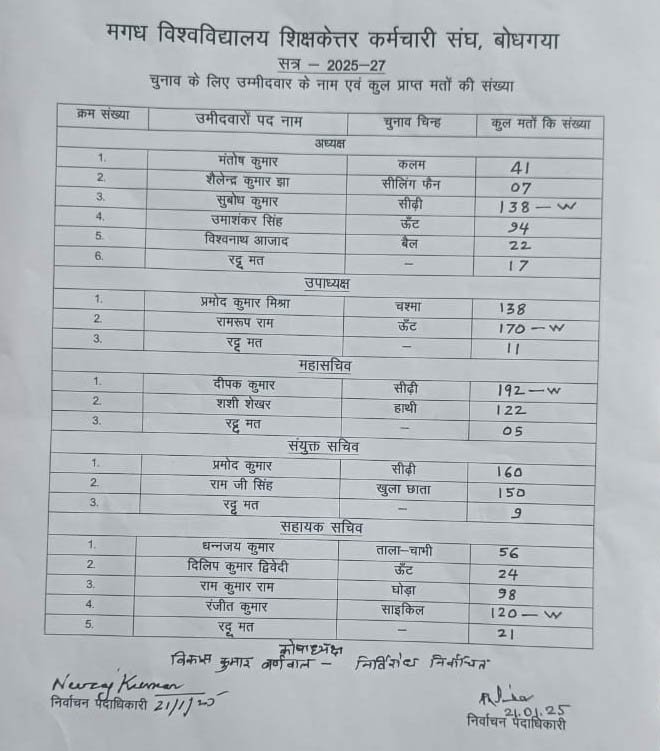 मगध विश्वविद्यालय शिक्षकेत्तर कर्मचारी संघ, बोधगया
सत्र – 2025–27
चुनाव के लिए उम्मीदवार के नाम एवं कुल प्राप्त मतों की संख्या
क्रम संख्या उमीदवारों पद नाम चुनाव चिन्ह कुल मतों कि संख्या
अध्यक्ष
1. मंतोष कुमार कलम 41
2. शैलेन्द्र कुमार झा सीलिंग फैन 07
3. सुबोध कुमार सीढ़ी 138 – W
4. उमाशंकर सिंह ऊँट 94
5. विश्वनाथ आजाद बैल 22
6. रद्दू मत – 17
उपाध्यक्ष
1. प्रमोद कुमार मिश्रा चश्मा 138
2. रामरूप राम ऊँट 170 – W
3. रद्दू मत – 11
महासचिव
1. दीपक कुमार सीढ़ी 192 – W
2. शशी शेखर हाथी 122
3. रद्दू मत – 05
संयुक्त सचिव
1. प्रमोद कुमार सीढ़ी 160
2. राम जी सिंह खुला छाता 150
3. रद्दू मत – 9
सहायक सचिव
1. धन्नजय कुमार ताला–चाभी 56
2. दिलिप कुमार द्विवेदी ऊँट 24
3. राम कुमार राम घोड़ा 98
4. रंजीत कुमार साइकिल 120 – W
5. रद्दू मत – 21
कोषाध्यक्ष
विकास कुमार वर्णवाल – निर्विरोध निर्वाचित
Neeraj Kumar
निर्वाचन पदाधिकारी 21/1/25
21.01.25
निर्वाचन पदाधिकारी